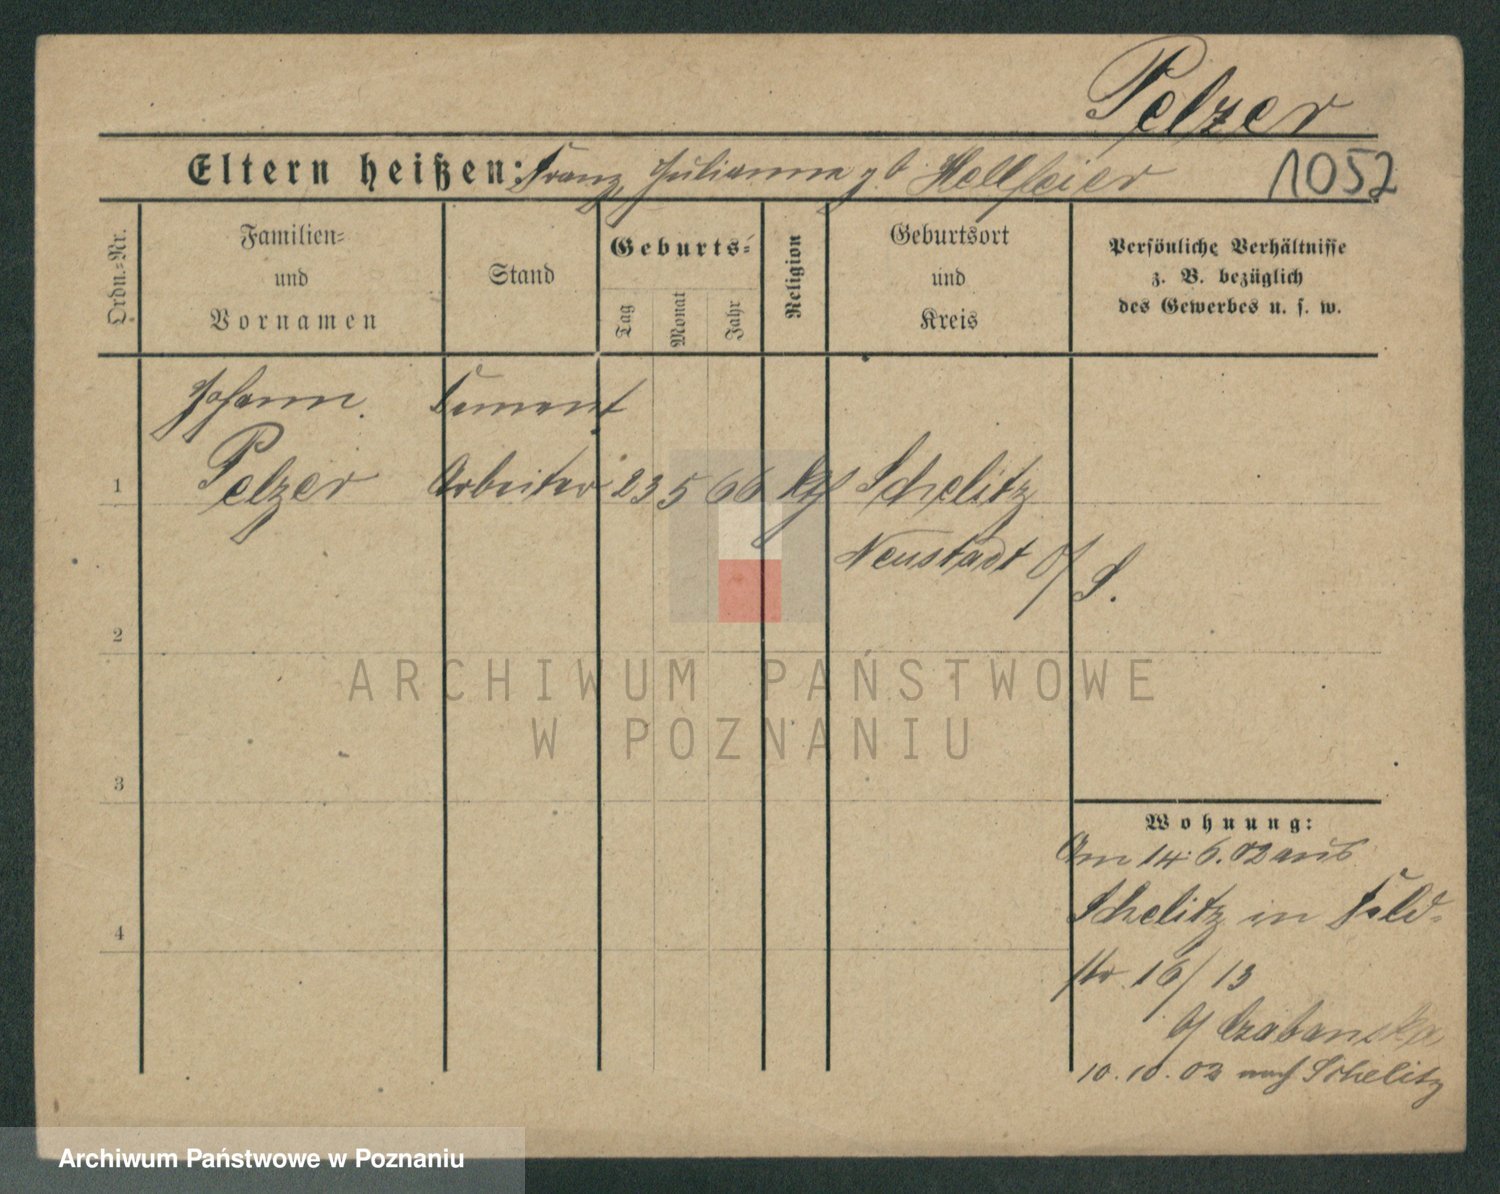 Pelzer
Eltern heißen: Franz, Julianna gb Hellfeier
1052
Ordn.=Nr.
Familien=
und
Vornamen
Stand
Geburts=
Tag
Monat
Jahr
Religion
Geburtsort
und
Kreis
Persönliche Verhältnisse
z. B. bezüglich
des Gewerbes u. s. w.
Johann Cement
1 Pelzer Arbeiter 23 5 66 kth Schelitz
Neustadt O/S.
2
3
4
ARCHIWUM PAŃSTWOWE
W POZNANIU
Wohnung:
Am 14.6.02 aus
Schelitz in Feld=
str. 16/13
b/ Czabanska
10.10.02 nach Schelitz
Archiwum Państwowe w Poznaniu